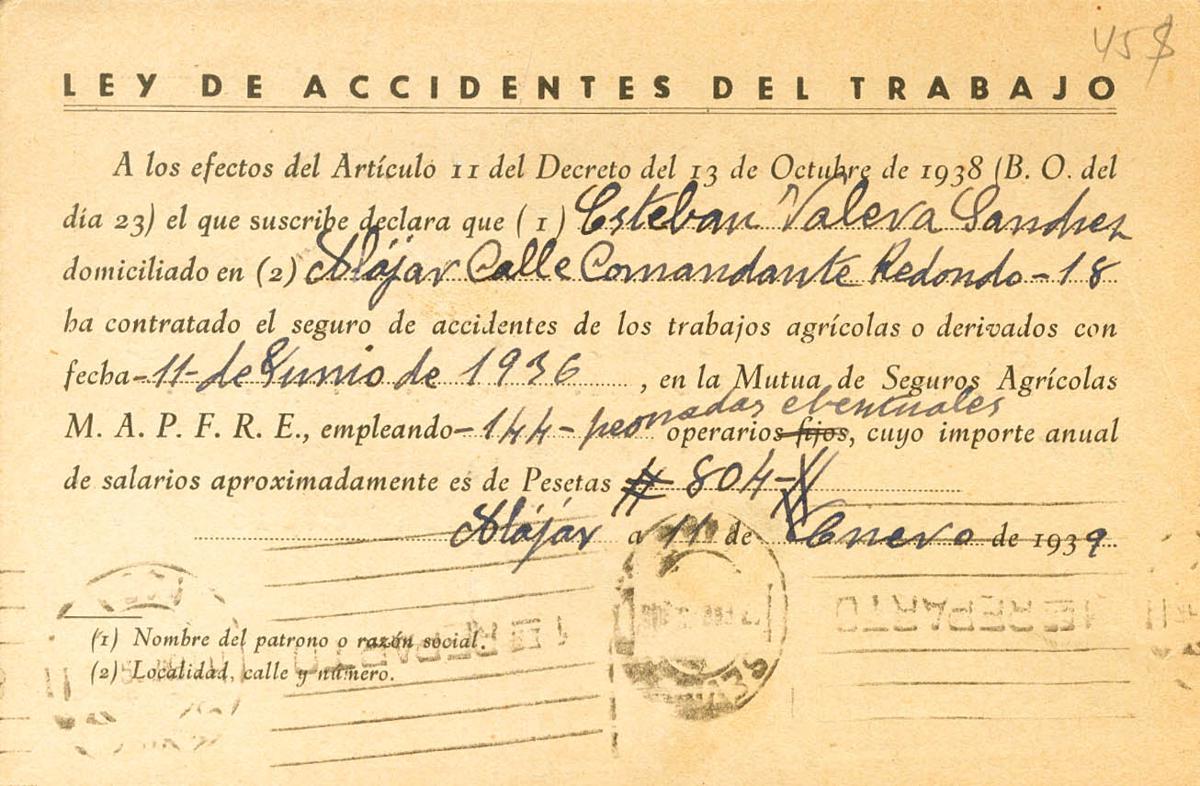 45$
LEY DE ACCIDENTES DEL TRABAJO
A los efectos del Artículo 11 del Decreto del 13 de Octubre de 1938 (B. O. del
día 23) el que suscribe declara que (1) Esteban Valera Sanchez
domiciliado en (2) Alájar Calle Comandante Redondo-18
ha contratado el seguro de accidentes de los trabajos agrícolas o derivados con
fecha -11- de Junio de 1936, en la Mutua de Seguros Agrícolas
M. A. P. F. R. E., empleando -144- peonadas ebentuales operarios fijos, cuyo importe anual
de salarios aproximadamente es de Pesetas # 804-#
Alájar a 11 de Enero de 1939
(1) Nombre del patrono o razón social.
(2) Localidad, calle y número.
1E REPARTO
1E REPARTO